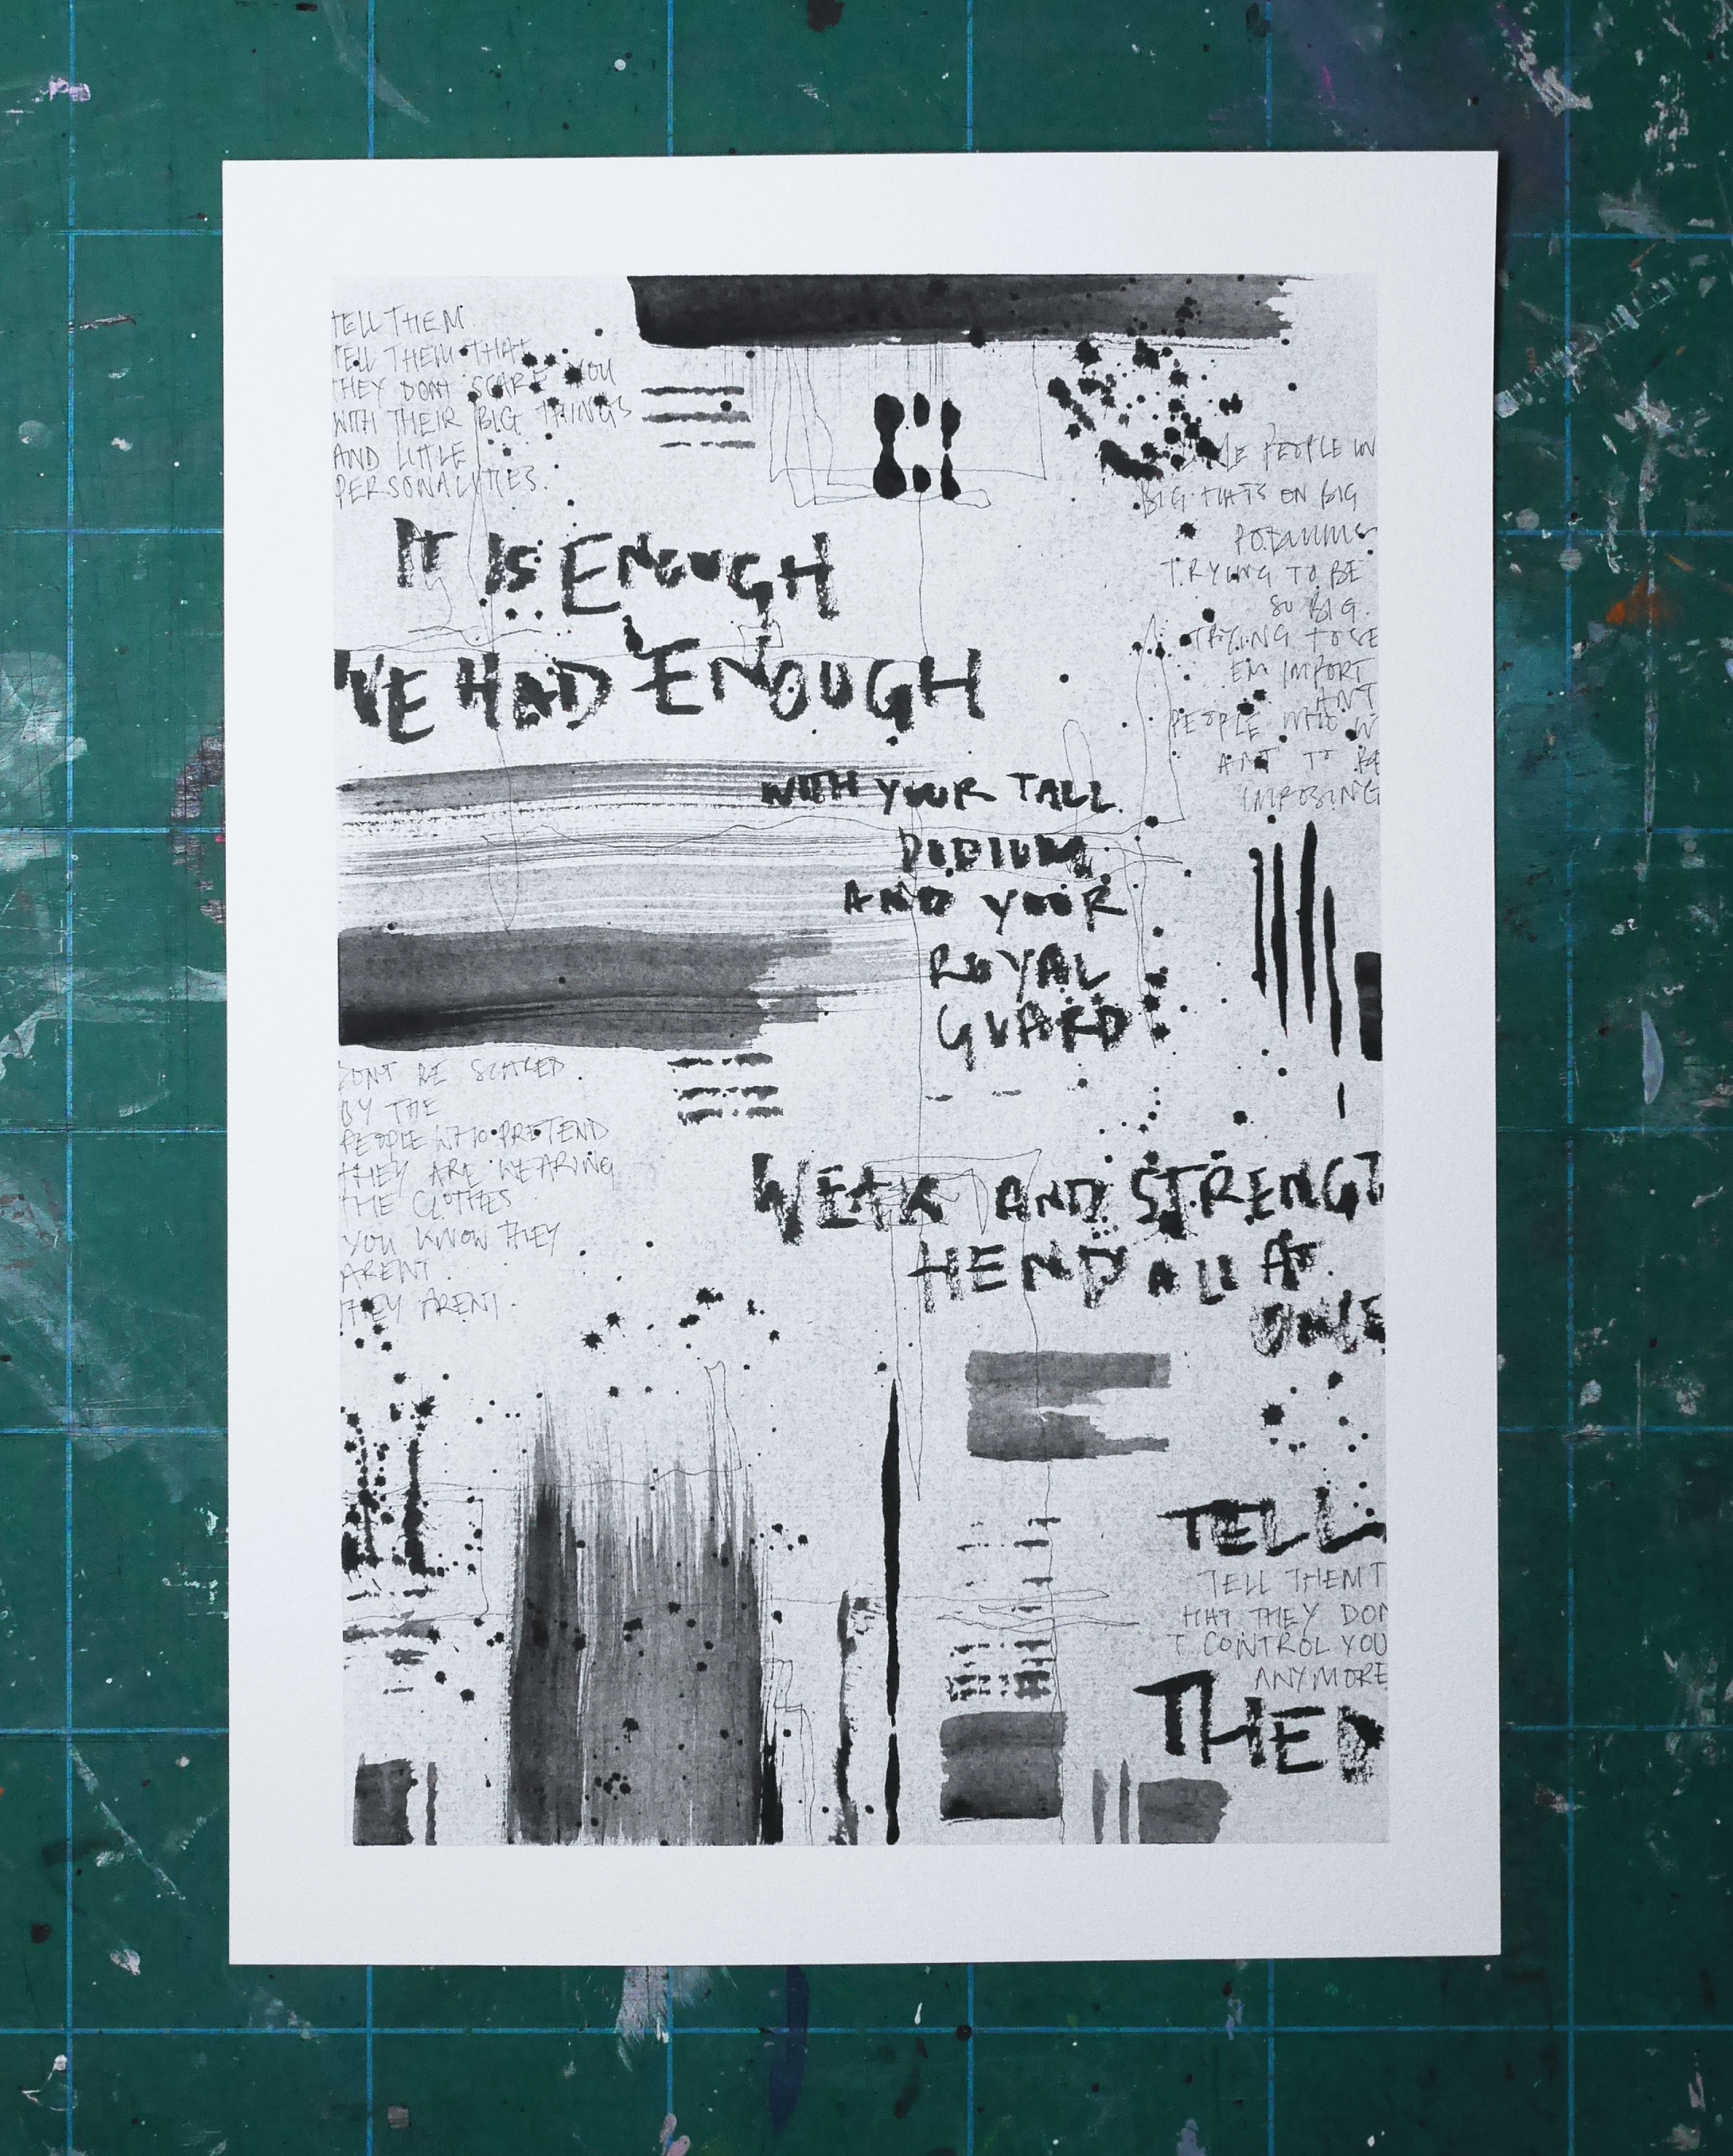 TELL THEM
TELL THEM THAT
THEY DONT SCARE YOU
WITH THEIR BIG THINGS
AND LITTLE
PERSONALITIES.
IT IS ENOUGH
WE HAD ENOUGH
PEOPLE IN
BIG HATS ON BIG
TRYING TO BE
SO BIG.
TRYING TO SE
EM IMPORT
ANT
PEOPLE WHO W
ANT TO BE
IMPOSING
WITH YOUR TALL
PODIUM
AND YOUR
ROYAL
GUARD
DONT BE SCARED.
BY THE
PEOPLE WHO PRETEND
THEY ARE WEARING
THE CLOTHES
YOU KNOW THEY
ARENT.
THEY ARENT.
WEAK AND STRENGT
HEND ALL AT
TELL
TELL THEM T
HAT THEY DON
T CONTROL YOU
ANYMORE